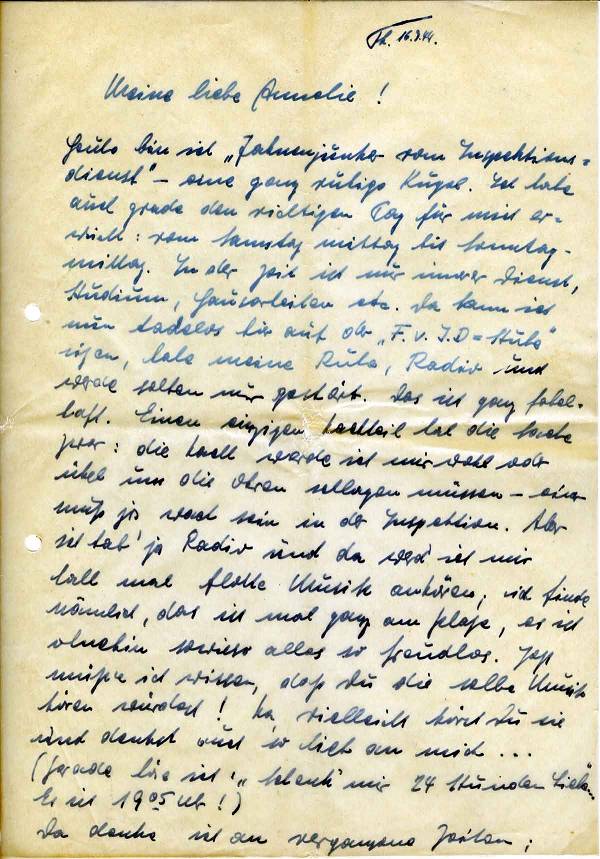 Th. 16.9.44.
Meine liebe Annelie!
Heute bin ich „Fahnenjunker vom Inspektions=
dienst" – eine ganz ruhige Kugel. Ich habe
auch grade den richtigen Tag für mich er=
wischt: vom Samstag mittag bis Sonntag-
mittag. In der Zeit ist nur immer Dienst,
Studium, Hausarbeiten etc. Da kann ich
nun tadellos hier auf der „F. v. I.D=Stube"
sitzen, habe meine Ruhe, Radio und
werde selten nur gestört. Das ist ganz fabel-
haft. Einen einzigen Nachteil hat die Sache
zwar: die Nacht werde ich mir wohl oder
übel um die Ohren schlagen müssen – einer
muß ja wach sein in der Inspektion. Aber
ich hab' ja Radio und da werd' ich mir
halt mal flotte Musik anhören; ich finde
nämlich, das ist mal ganz am Platze, es ist
ohnehin sowieso alles so freudlos. Jetzt
müßte ich wissen, daß Du die selbe Musik
hören würdest! Na, vielleicht hörst Du sie
und denkst auch so lieb an mich ...
(Gerade höre ich: „Schenk' mir 24 Stunden Liebe...
Es ist 19⁰⁵ Uhr!)
Da denke ich an vergangene Zeiten;